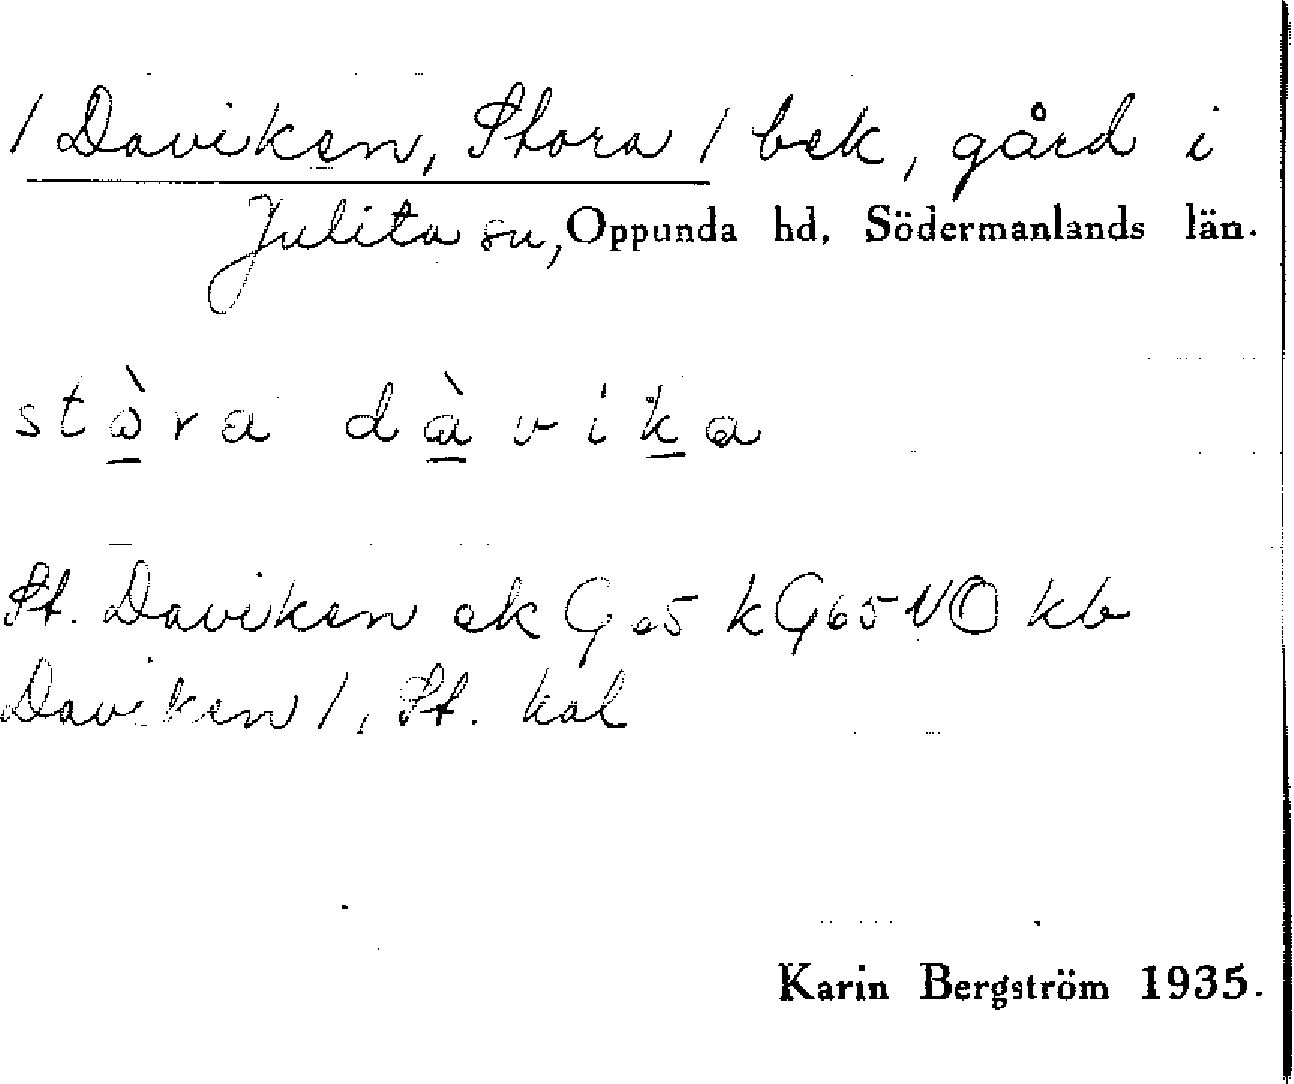 / Daviken, Stora / bek, gård i
Julita sn, Oppunda hd, Södermanlands län.
stòra dàvika
St. Daviken ek G 65 k G 65 NO kb
Daviken /, St. kal
Karin Bergström 1935.